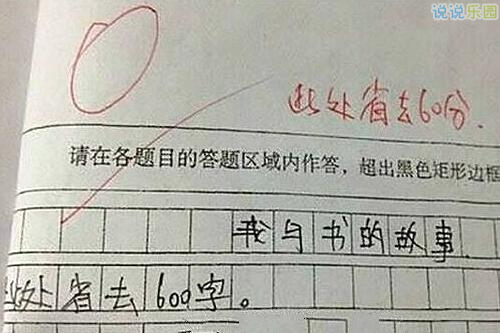 说说乐园
此处省去60分.
请在各题目的答题区域内作答，超出黑色矩形边框
我与书的故事
此处省去600字。